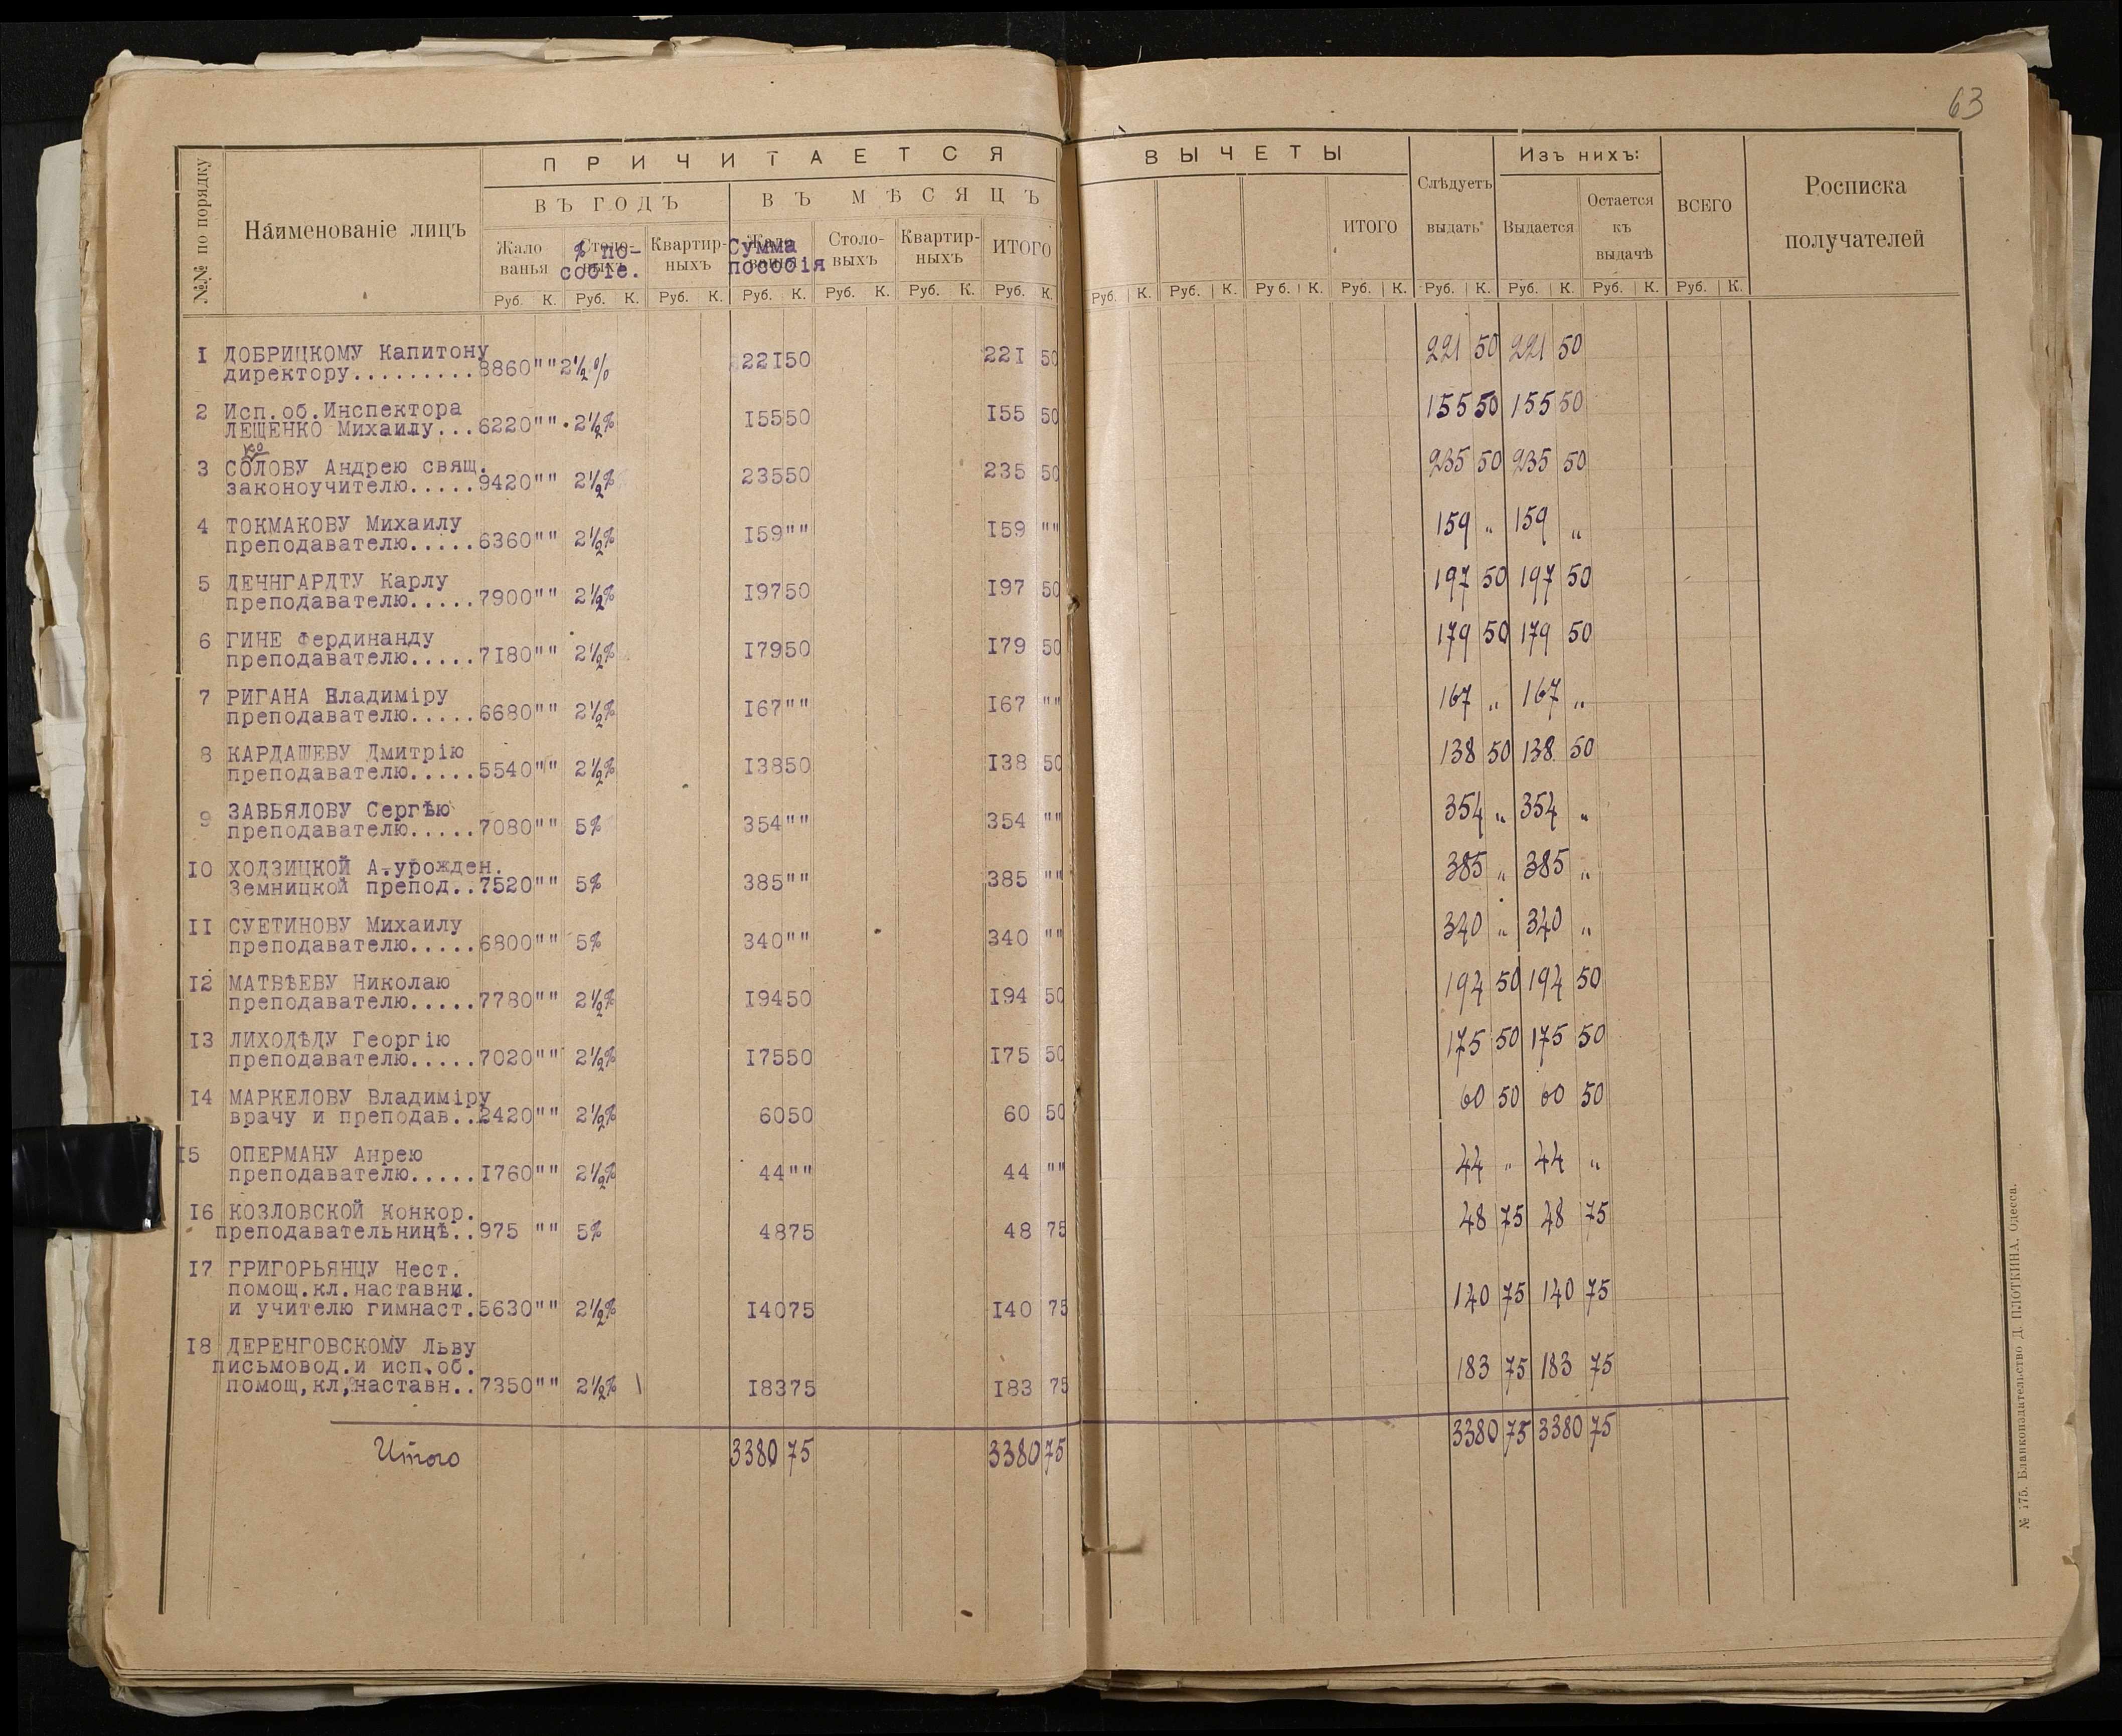 63
ПРИЧИТАЕТСЯ
ВЫЧЕТЫ
Изъ нихъ:
№№ по порядку
Наименованіе лицъ
ВЪ ГОДЪ
ВЪ МѢСЯЦЪ
ИТОГО
Слѣдуетъ выдать
Выдается
Остается къ выдачѣ
ВСЕГО
Росписка получателей
Жало ванья
Столо- выхъ
% по- собіе.
Квартир- ныхъ
Жало ванья
Сумма пособія
Столо- выхъ
Квартир- ныхъ
ИТОГО
Руб. К. Руб. К. Руб. К. Руб. К. Руб. К. Руб. К. Руб. К. Руб. К. Руб. К. Руб. К. Руб. К. Руб. К. Руб. К. Руб. К. Руб. К.
1 ДОБРИЦКОМУ Капитону
директору.........8860 "" 2½% 221 50 221 50 221 50 221 50
2 Исп.об.Инспектора
ЛЕЩЕНКО Михаилу...6220 "" 2½% 155 50 155 50 155 50 155 50
ко
3 СОЛОВУ Андрею свящ.
законоучителю.....9420 "" 2½% 235 50 235 50 235 50 235 50
4 ТОКМАКОВУ Михаилу
преподавателю.....6360 "" 2½% 159 "" 159 "" 159 " 159 "
5 ДЕННГАРДТУ Карлу
преподавателю.....7900 "" 2½% 197 50 197 50 197 50 197 50
6 ГИНЕ Фердинанду
преподавателю.....7180 "" 2½% 179 50 179 50 179 50 179 50
7 РИГАНА Владиміру
преподавателю.....6680 "" 2½% 167 "" 167 "" 167 " 167 "
8 КАРДАШЕВУ Дмитрію
преподавателю.....5540 "" 2½% 138 50 138 50 138 50 138 50
9 ЗАВЬЯЛОВУ Сергѣю
преподавателю.....7080 "" 5% 354 "" 354 "" 354 " 354 "
10 ХОДЗИЦКОЙ А.урожден.
Земницкой препод..7520 "" 5% 385 "" 385 "" 385 " 385 "
11 СУЕТИНОВУ Михаилу
преподавателю.....6800 "" 5% 340 "" 340 "" 340 " 340 "
12 МАТВѢЕВУ Николаю
преподавателю.....7780 "" 2½% 194 50 194 50 194 50 194 50
13 ЛИХОДѢДУ Георгію
преподавателю.....7020 "" 2½% 175 50 175 50 175 50 175 50
14 МАРКЕЛОВУ Владиміру
врачу и преподав..2420 "" 2½% 60 50 60 50 60 50 60 50
15 ОПЕРМАНУ Анрею
преподавателю.....1760 "" 2½% 44 "" 44 "" 44 " 44 "
16 КОЗЛОВСКОЙ Конкор.
преподавательницѣ..975 "" 5% 48 75 48 75 48 75 48 75
17 ГРИГОРЬЯНЦУ Нест.
помощ.кл.наставни.
и учителю гимнаст.5630 "" 2½% 140 75 140 75 140 75 140 75
18 ДЕРЕНГОВСКОМУ Льву
письмовод.и исп.об.
помощ,кл,наставн..7350 "" 2½% 183 75 183 75 183 75 183 75
Итого 3380 75 3380 75 3380 75 3380 75
№ 175. Бланкоиздательство Д. ПЛОТКИНА, Одесса.